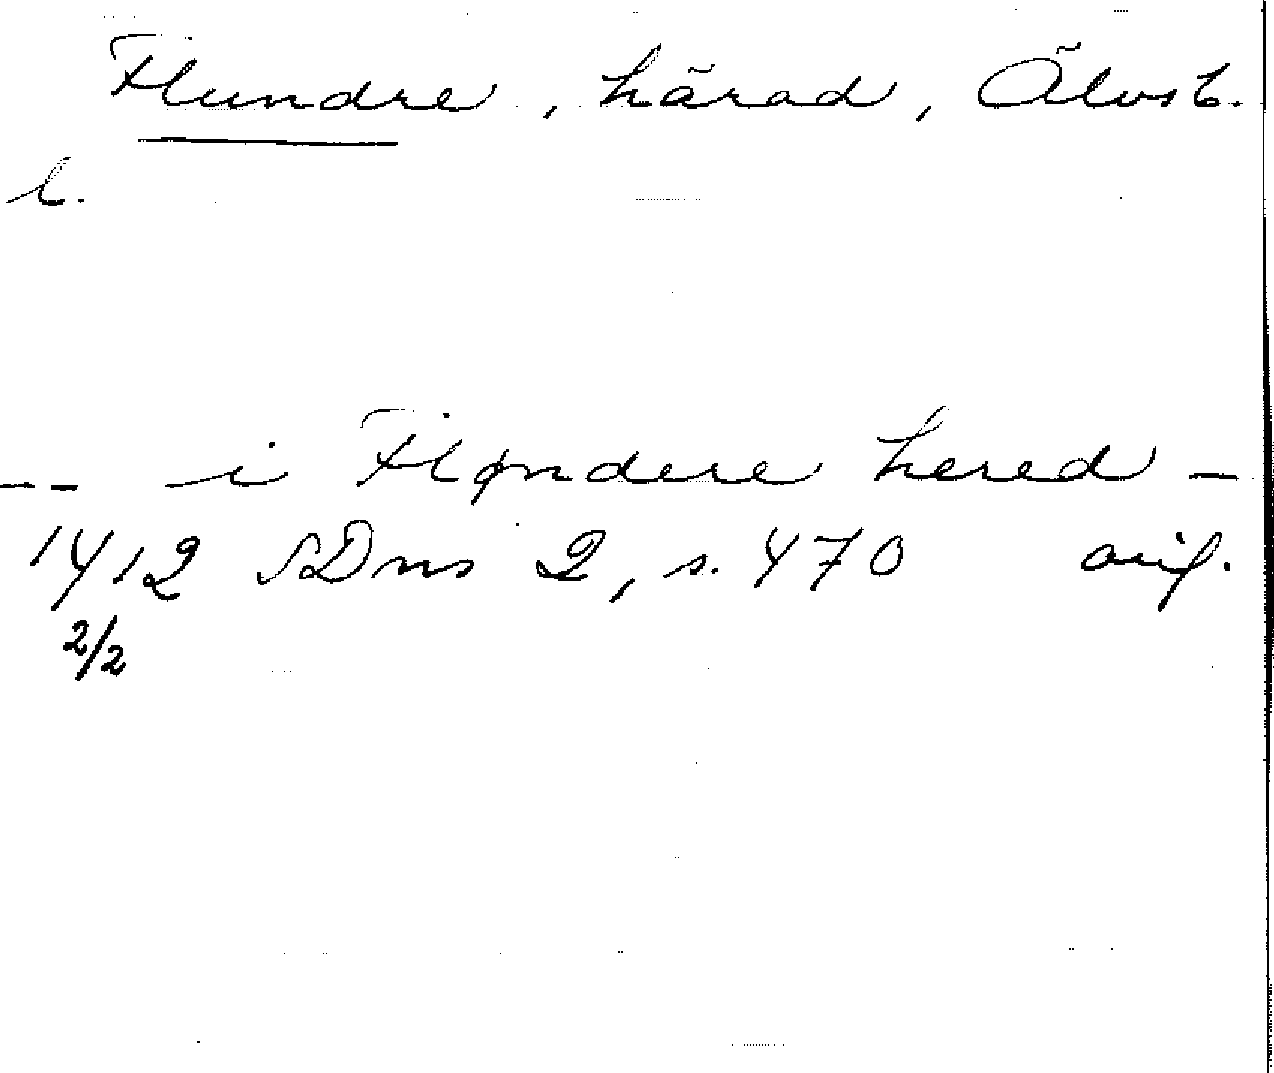 Flundre, härad, Älvsb.
l.
-- i Fløndere hered -
1412 SDns 2, s. 470 orig.
2/2